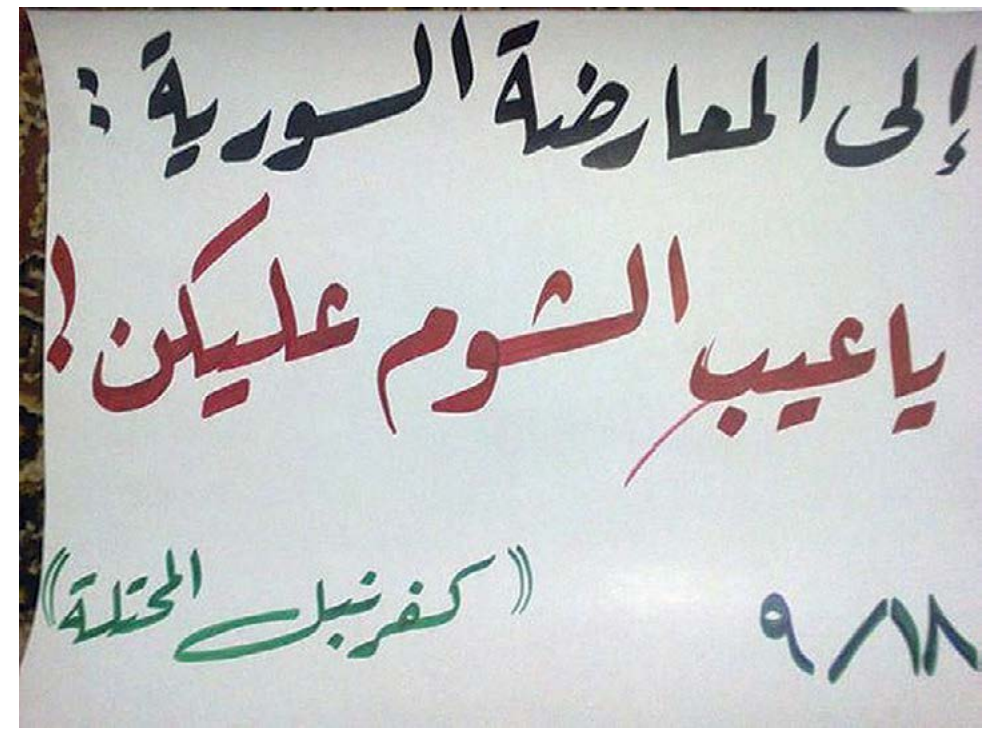 إلى المعارضة السورية :
يا عيب الشوم عليكن !
١٨/٩ ((كفرنبل المحتلة))